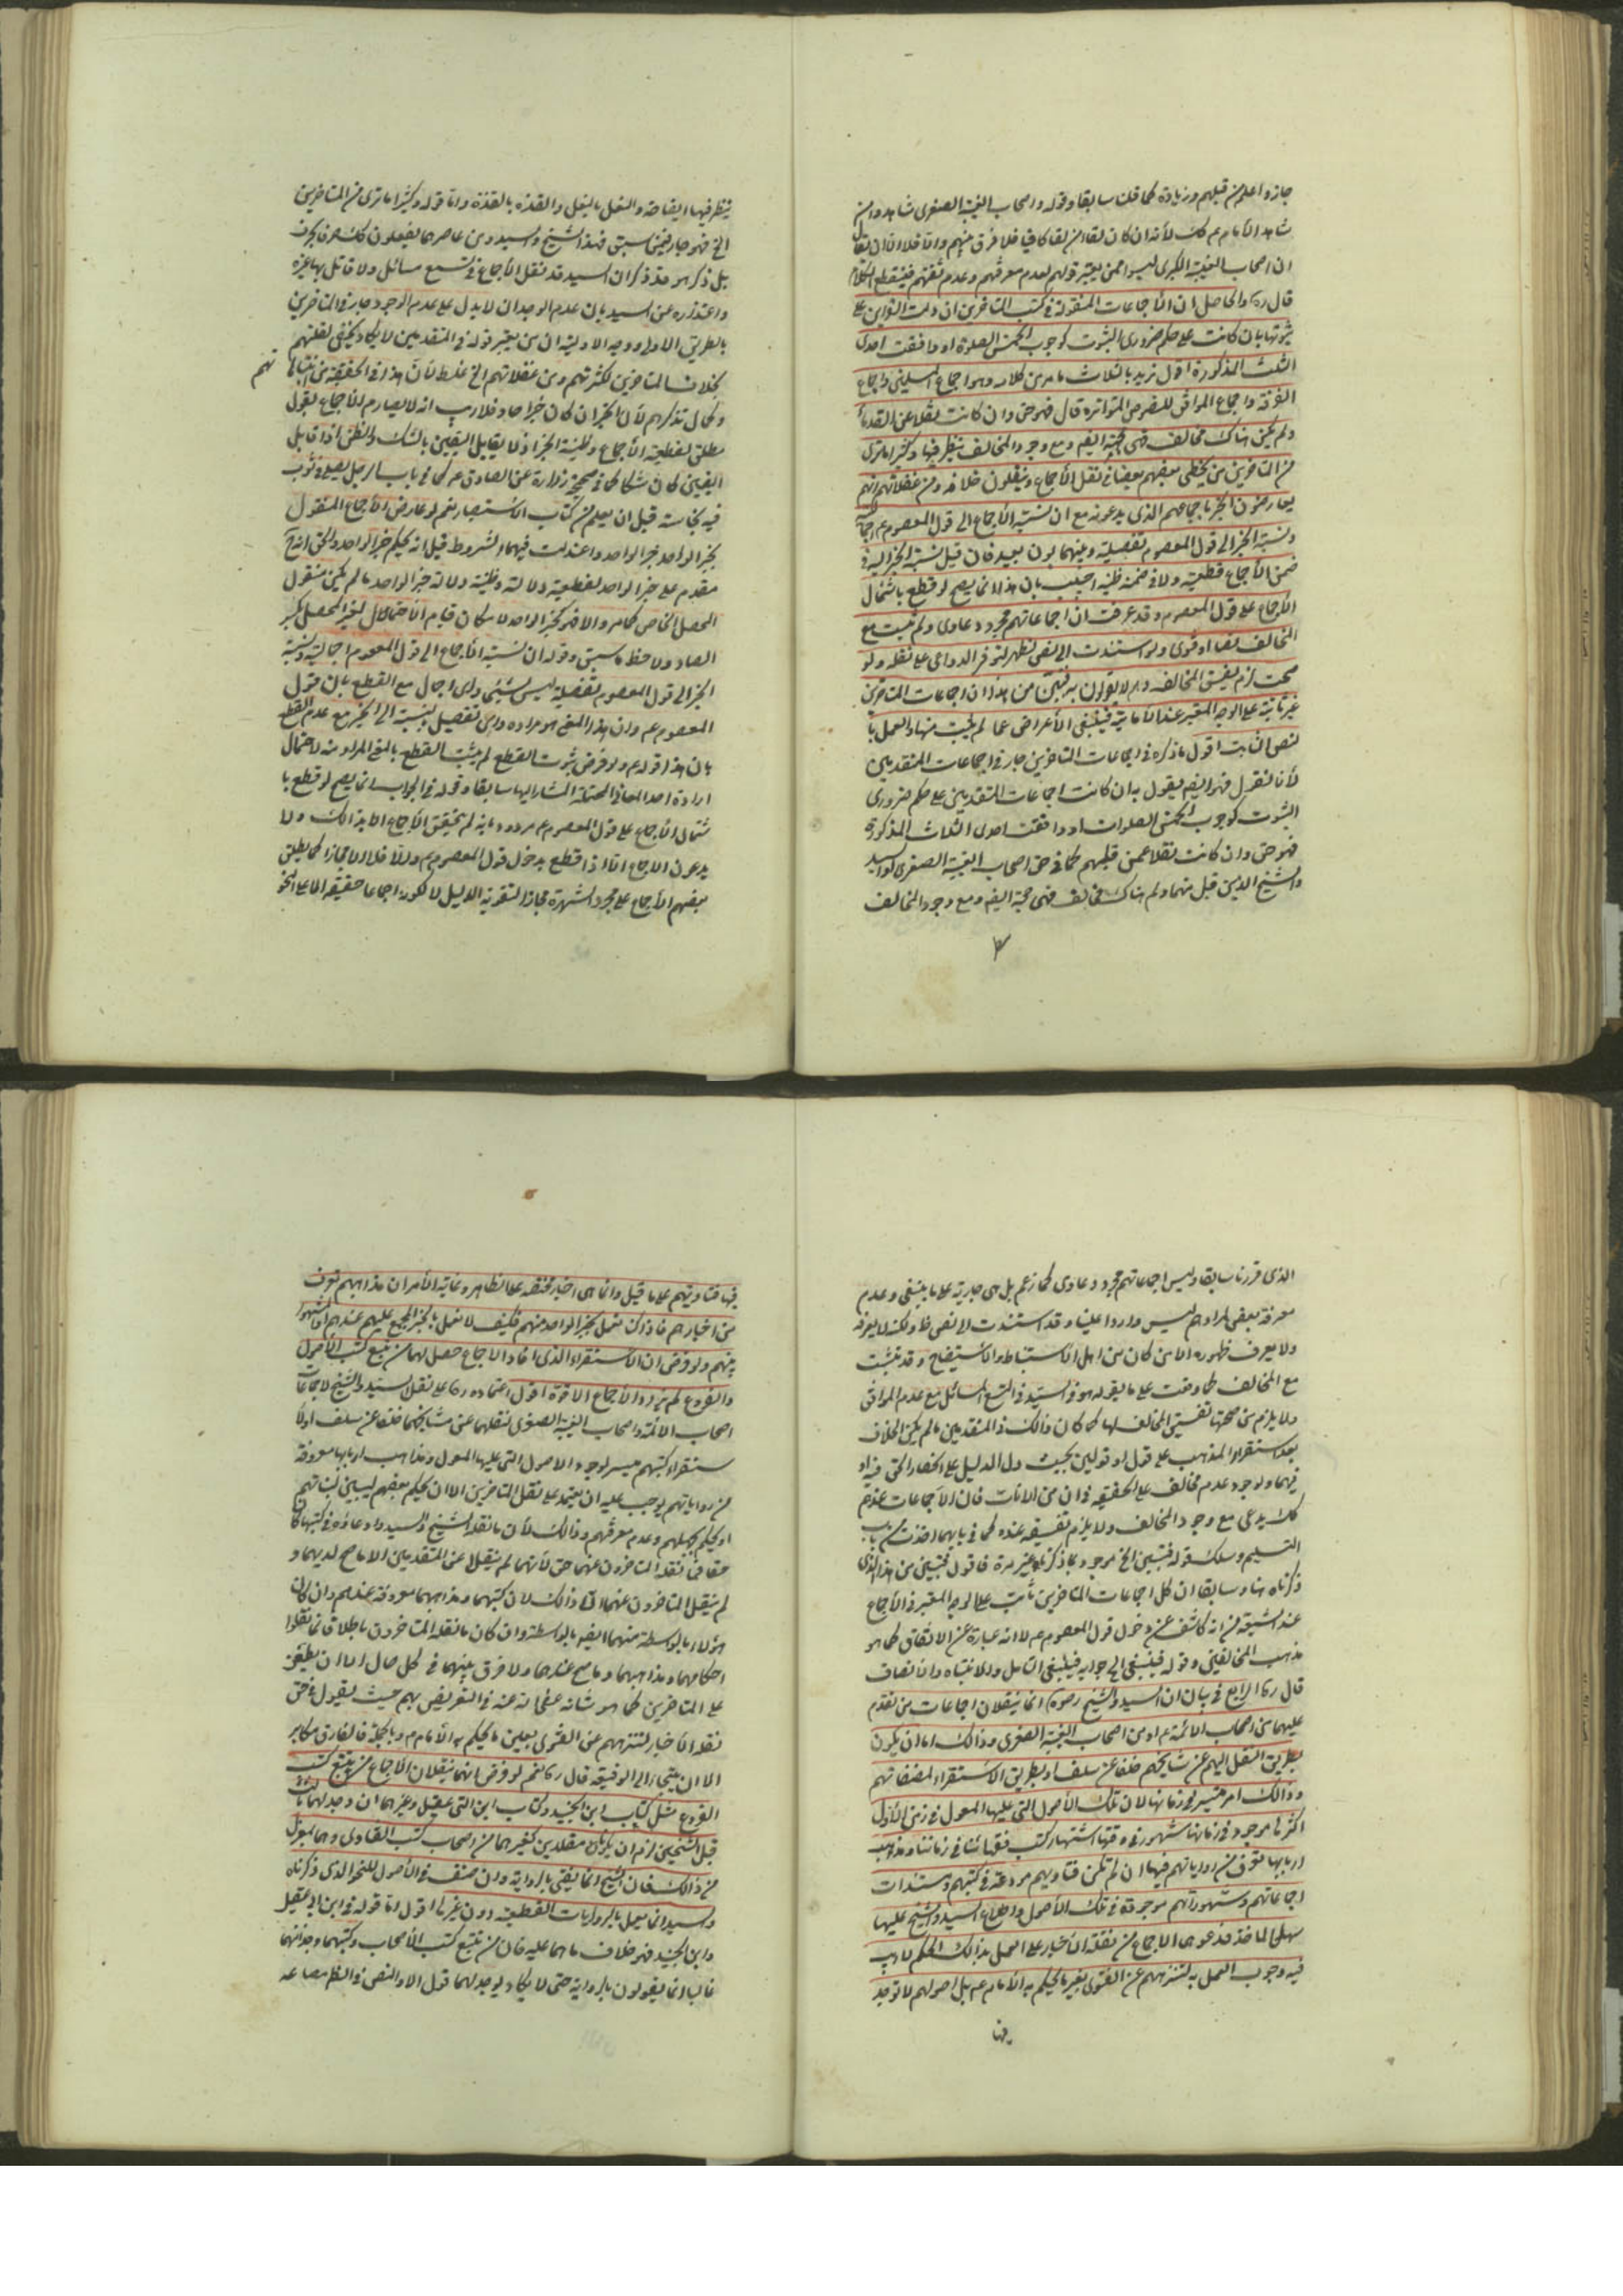 جاز واعلم من قبلهم وزيادة كما قلنا سابقا وقوله واصحاب الغيبة الصغرى شاهدوا من
شاهد الأمام عم كك لأنه ان كان لقاء من لقا كافيا فلا فرق بينهم والا فلا الا ان يقال
ان اصحاب الغيبة الكبرى ليسوا ممن يعتبر قولهم لعدم معرفتهم وعدم ثقتهم فينقطع الكلام
قال ره والحاصل ان الأجماعات المنقولة في كتب المتأخرين ان دلت القراين على
ثبوتها بان كانت على حكم ضروري الثبوت كوجوب الخمس الصلوة او وافقت احدى
الثلث المذكورة اقول نريد بالثلاث ما مر من كلامه وهو اجماع المسلمين واجماع
الفرقة واجماع الموافق للنصوص المتواترة قال فهو حق وان كانت نقلا عن القدماء
ولم يكن هناك مخالف فهى حجة ايضا ومع وجود المخالف ينظر فيها وكثيرا ما ترى
من المتأخرين من يخطى بعضهم بعضا في نقل الأجماع وينقلون خلافه ومن غفلاتهم انهم
يعارضون الخبر باجماعهم الذى يدعونه مع ان نسبة الأجماع الى قول المعصوم عم اجمالية
ونسبة الخبر الى قول المعصوم تفصيلية وبينهما بون بعيد فان قيل نسبة الخبر اليه في
ضمن الأجماع قطعية ولا في ضمنه ظنية اجيب بان هذا انما يصح لو قطع باشتمال
الأجماع على قول المعصوم وقد عرفت ان اجماعاتهم مجرد دعاوى ولم تثبت مع
المخالف نصا او فتوى ولو استندت الى نص لظهر لتوفر الدواعى على نقله ولو
صحت لزم تفسيق المخالف وهم لا يقولون به فتبين من هذا ان اجماعات المتأخرين
غير ثابتة على الوجه المعتبر عند الأمامية فينبغى الأعراض عما لم يثبت منها والعمل با
لنص الثابت اقول ما ذكره في اجماعات المتأخرين جار في اجماعات المتقدمين
لأنا نقول فهو ايضا يقول به ان كانت اجماعات المتقدمين على حكم ضروري
الثبوت كوجوب الخمس الصلوات او وافقت احدى الثلاث المذكورة
فهو حق وان كانت نقلا عمن قبلهم كما في حق اصحاب الغيبة الصغرى كالسيد
والشيخ الذين قبل منهما ولم هناك مخالف فهى حجة ايضا ومع وجود المخالف
ينظر فيها ايضا حذو النعل بالنعل والقذه بالقذة واما قوله وكثيرا ما ترى من المتأخرين
الخ فهو جار فيمن سبق فهذا الشيخ والسيد ومن عاصرهما يفعلون كك
بل ذكر هو قد ذكر ان السيد قد نقل الأجماع في تسع مسائل ولا قائل بها غيره
واعتذاره عن السيد بان عدم الوجدان لا يدل على عدم الوجود جار في المتأخرين
بالطريق الاولى ووجه الاولوية ان من يعتبر قوله في المتقدمين لا يكاد يخفى لقلتهم
بخلاف المتأخرين لكثرتهم ومن غفلاتهم الخ غلط لأن هذا في الحقيقة من تنبها
تهم
وكمال تذكرهم لأن الخبر ان كان خبر احاد فلا ريب انه لا يصادم الأجماع بقول
مطلق لقطعية الأجماع وظنية الخبر اذ لا يقابل اليقين بالشك والظن اذا قابل
اليقين كان شكا كما في صحيح زرارة عن الصادق عم كما في باب الرجل يصلى في ثوب
فيه نجاسة قبل ان يعلم من كتاب الاستبصار نعم لو عارض الأجماع المنقول
بخبر الواحد خبر الواحد واعتدلت فيهما الشروط قيل انه بحكم خبر الواحد والحق انه
مقدم على خبر الواحد لقطعية دلالته وظنية دلالة خبر الواحد ما لم يكن منقول
المحصل الخاص كما مر والا فهو كخبر الواحد لامكان قيام الأحتمال لغير المحصل بكسر
الصاد ولاحظ ما سبق وقوله ان نسبة الأجماع الى قول المعصوم اجمالية ونسبة
الخبر الى قول المعصوم تفصيلية ليس بشيئ واى اجمال مع القطع بان قول
المعصوم عم وان هذا المعنى هو مراده واى تفصيل بنسبة الى الخبر مع عدم القطع
بان هذا قوله عم ولو فرض ثبوت القطع لم يثبت القطع بالمعنى المراد منه لاحتمال
ارادة احد المعاني المحتملة المشار اليها سابقا وقوله في الجواب انما يصح لو قطع با
شتمال الأجماع على قول المعصوم عم مردود بانه لم يتحقق الأجماع الا بذالك ولا
يدعون الاجماع الا اذا قطع بدخول قول المعصوم عم والا فلا الا مجازا كما يطلق
بعضهم الأجماع على مجرد الشهرة مجازا لتقوية الدليل لا لكونه اجماعا حقيقة الا على النحو
الذى قررنا سابقا وليس اجماعاتهم مجرد دعاوى كما زعم بل هى جارية على ما ينبغى وعدم
معرفة بعض لمرادهم ليس واردا علينا وقد استندت الى نص ظ ولكنه لا يعرفه
ولا يعرف ظهوره الا من كان من اهل الأستنباط والأستيضاح وقد تثبت
مع المخالف كما وقعت على ما يقوله هو في السيد في التسع المسائل مع عدم الموافق
ولا يلزم من صحتها تفسيق المخالف لها كما كان ذالك في المتقدمين ما لم يكن الخلاف
بعد استقرار المذهب على قول او قولين بحيث دل الدليل على انحصار الحق فيه او
فيهما ولوجود عدم مخالف على الحقيقه في ان من الانات فان الاجماعات عندهم
كك يدعى مع وجود المخالف ولا يلزم تفسيقه عنده كما في بابهما اخذت من باب
التسليم وسلك قوله فتبين الخ موجود بما ذكرناه غير مرة فاقول فتبين من هذا الذى
ذكرناه هنا وسابقا ان كل اجماعات المتأخرين ثابت على الوجه المعتبر في الأجماع
عند الشيعة من انه كاشف عن دخول قول المعصوم عم لا انه عبارة عن الاتفاق كما هو
مذهب المخالفين وقوله فينبغى الخ جوابه فينبغى التأمل والانتباه والأنصاف
قال ره الرابع في بيان ان السيد والشيخ رضوه انما ينقلان اجماعات من تقدم
عليهما من اصحاب الائمة عم او من اصحاب الغيبة الصغرى وذالك اما ان يكون
بطريق النقل اليهم عن مشايخهم خلفا عن سلف او بطريق الاستقراء لمصنفاتهم
وذالك امر متيسر في زمانهما لان تلك الأصول التى عليها المعول في زمن الأول
اكثرها موجود في زمانهما مشهور في وقتهما اشتهار كتب فقهائنا في زماننا ومذهب
اربابها تعرف من رواياتهم فيها ان لم تكن فتاويهم مودعة في كتبهم ومستندات
اجماعاتهم ومشهوراتهم موجودة في تلك الأصول واطلاع السيد والشيخ عليها
سهل المأخذ فدعوى الاجماع من نقلة الأخبار على العمل بذالك الحكم لا ريب
فيه وجوب العمل به لتنزههم عن الفتوى بغير ما يحكم به الأمام عم بل اصولهم لا توجد
فيها
فيها فتاويهم على ما قيل وانما هى اخبار محضة على الظاهر وغاية الأمر ان مذاهبهم تعرف
من اخبارهم فاذا كنا نعمل بخبر الواحد منهم فكيف لا نعمل بالخبر المجمع عليهم عندهم او المشهور
بينهم ولو فرض ان الأستقراء الذى افاد الاجماع حصل لهما من تتبع كتب الأصول
والفروع لم يزد الأجماع الا قوة اقول اعتماده ره على نقل السيد والشيخ لاجماعات
اصحاب الائمة واصحاب الغيبة الصغرى لنقلهما عن مشايخهما خلفا عن سلف او لا
ستقراء كتبهم ميسر لوجود الاصول التى عليها المعول ومذاهب اربابها معروفة
من رواياتهم يوجب عليه ان يعتمد على نقل المتأخرين الا ان يحكم بعضهم لسببين لثباتهم
او يحكم بجهلهم وعدم معرفتهم وذالك لأن ما نقله الشيخ والسيد وادعاؤه في كتبهما كان
حقا فما نقله المتأخرون عنهما حق لأنهما لم ينقلا عن المتقدمين الا ما صح لديهما و
لم ينقل المتأخرون عنهما الا ذالك لان كتبهما ومذاهبهما معروفة عندهم وان كان
هؤلاء بالواسطة منهما ايضا بالواسطة وان كان ما نقله المتأخرون باطلا فانما نقلوا
احكامهما ومذاهبهما وما صح عندهما ولا فرق بينهما في كل حال اما ان يطعن
على المتأخرين كما هو شأنه عفى الله عنه في التعريض بهم حيث يقول في حق
نقلة الأخبار لتنزههم عن الفتوى بغير ما يحكم به الأمام عم وبالجملة فالفارق مكابر
الا ان يتجاز الى الوقيعة قال ره نعم لو فرض انهما ينقلان الأجماع من تتبع كتب
الفروع مثل كتاب ابن الجنيد وكتاب ابن ابى عقيل وغيرهما ان وجد لهما ثالث
قبل الشيخين لزم ان يكونا مقلدين كغيرهما من اصحاب كتب الفتاوى وهما بمعزل
من ذالك فان الشيخ انما يفتى بالرواية وان صنف في الأصول للنحو الذى ذكرناه
والسيد انما يعمل بالروايات القطعية دون غيرها اقول اما قوله في ابن ابى عقيل
وابن الجنيد فهو خلاف ما هما عليه فان من تتبع كتب الأصحاب وكتبهما وجد انهما
غالبا انما يقولون بالرواية حتى لا يكاد يوجد لهما قول الا والنص في الظ معاضد